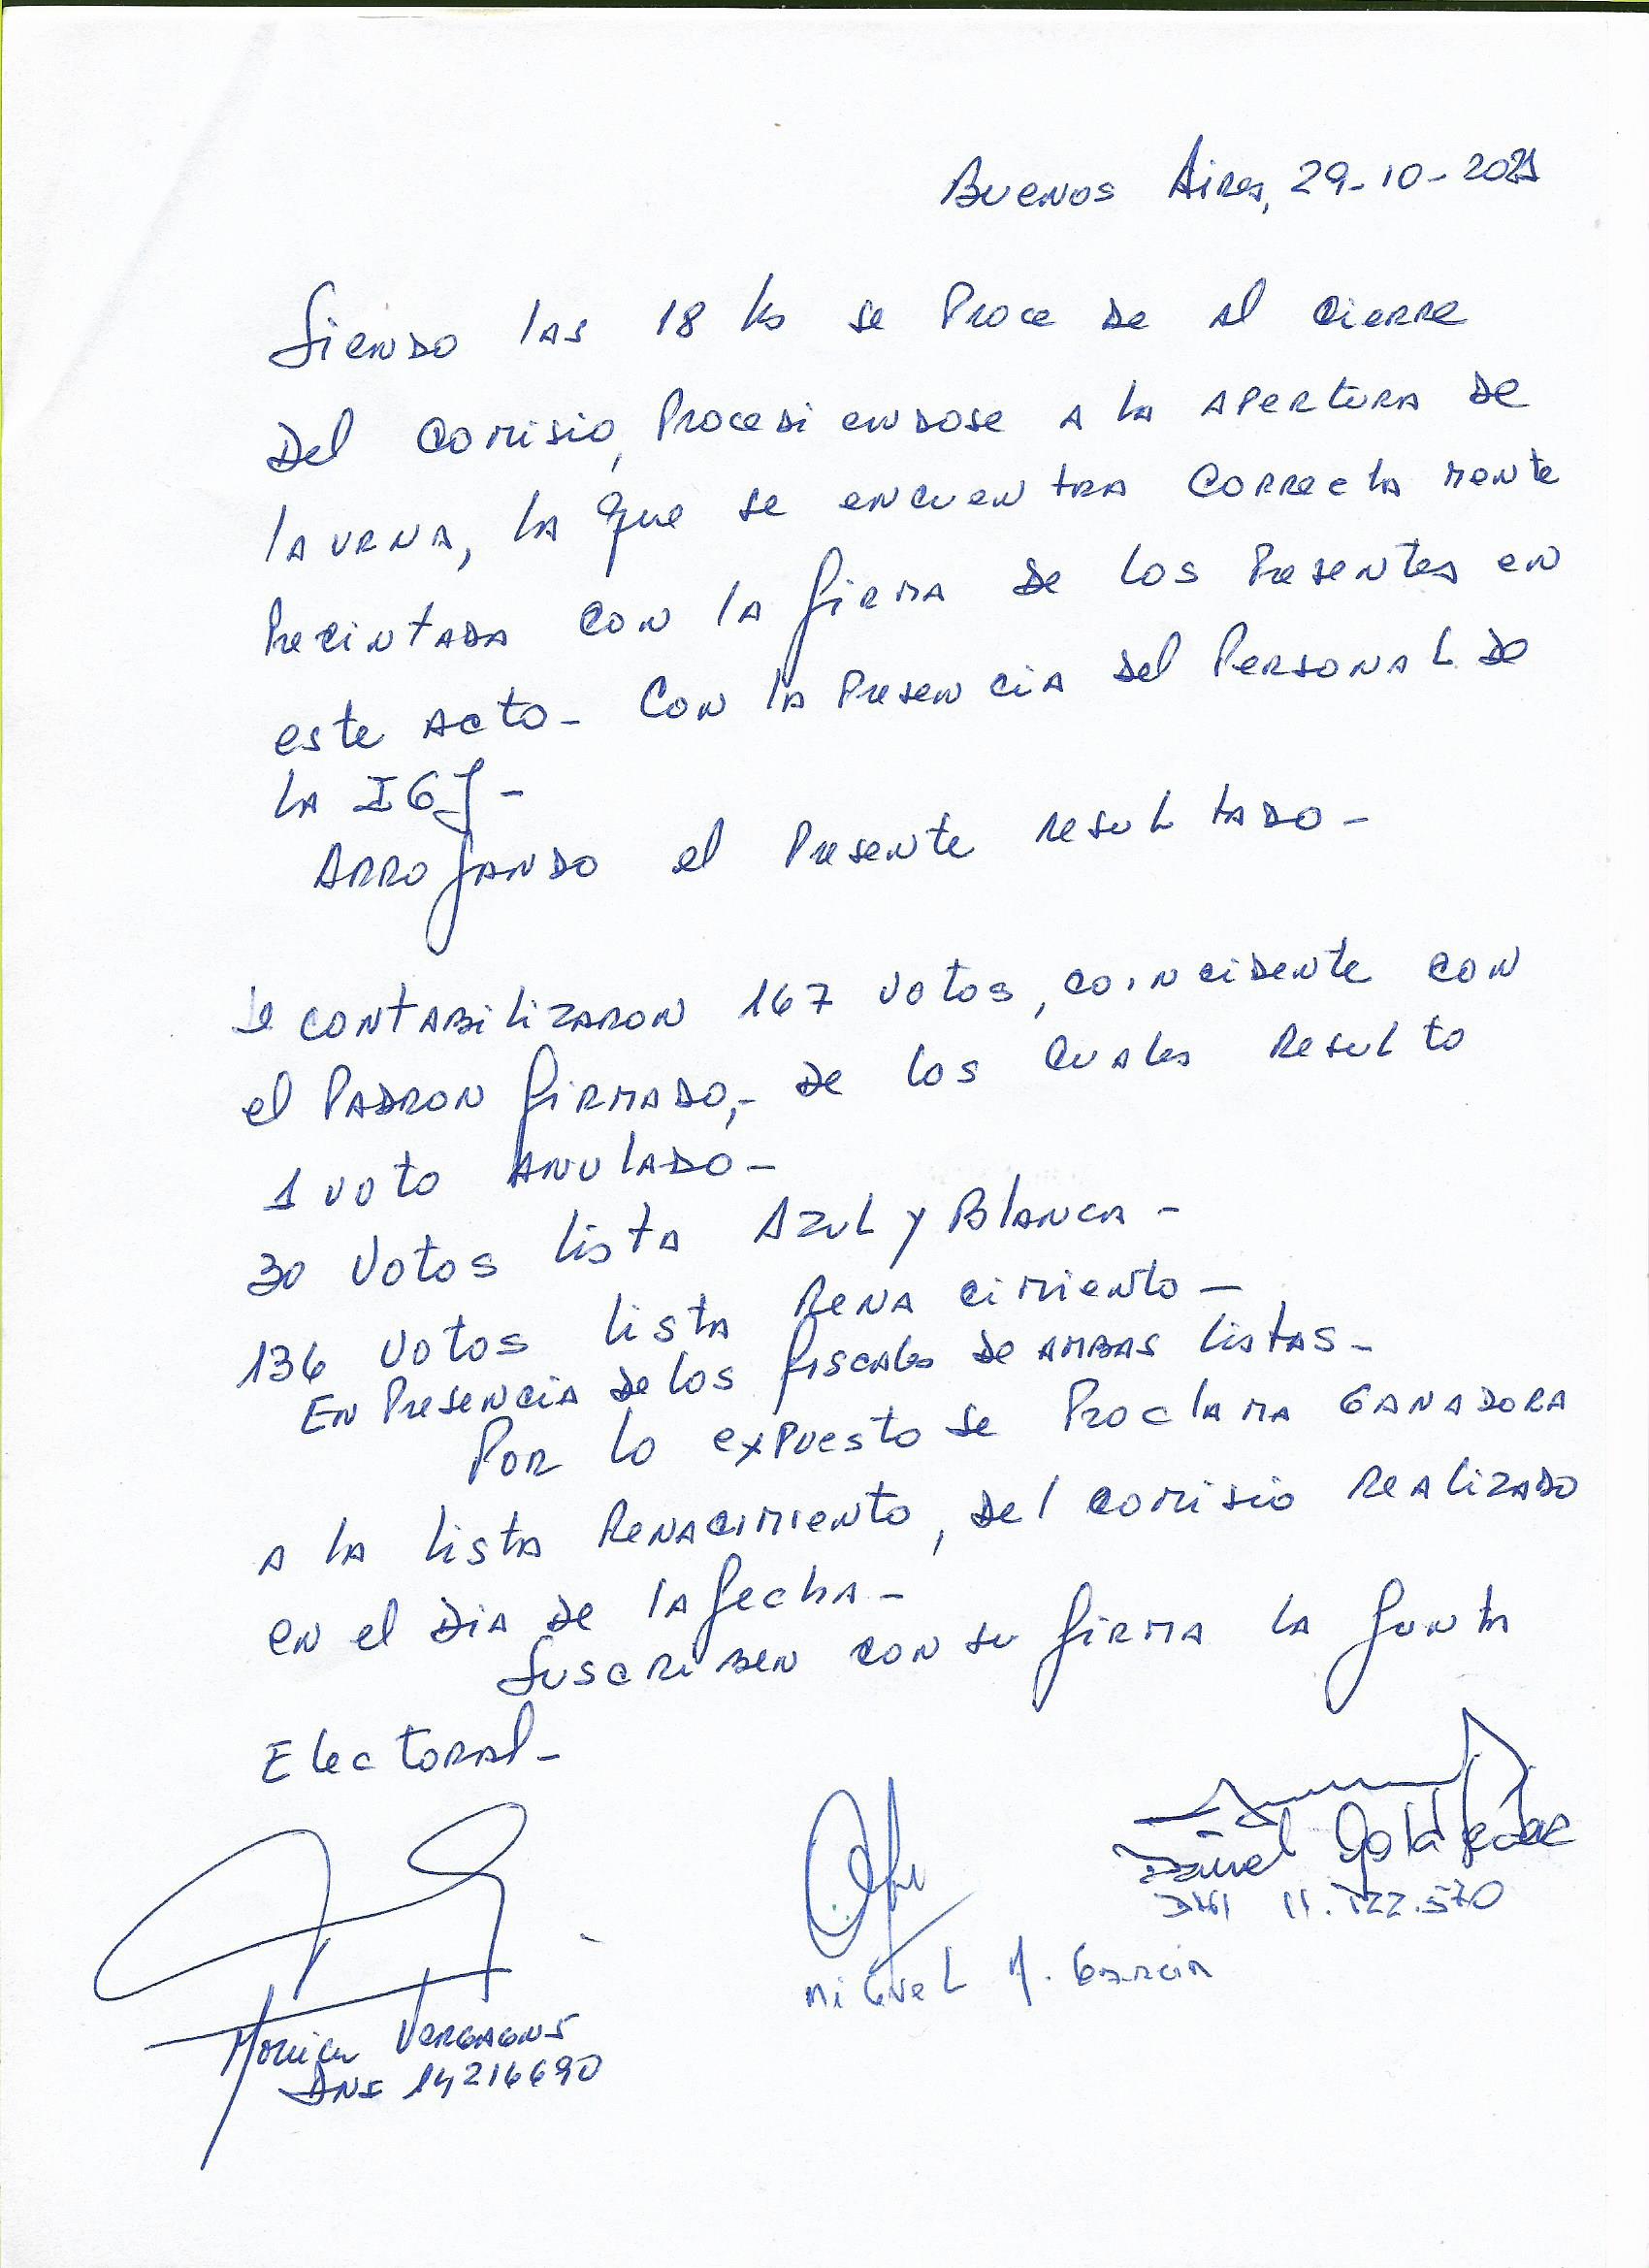 Buenos Aires, 29-10-2021
Siendo las 18 hs se Procede al cierre
Del comisio, Procediendose a la apertura de
la urna, la que se encuentra correctamente
Precintada con la firma de los Presentes en
este acto - Con la Presencia del Personal de
la IGJ -
Arrojando el Presente resultado -
Se contabilizaron 167 votos, coincidente con
el Padron firmado, - de los cuales Resulto
1 voto anulado -
30 votos lista Azul y Blanca -
136 votos lista Renacimiento -
En Presencia de los fiscales de ambas listas -
Por lo expuesto se Proclama Ganadora
a la lista Renacimiento, del comisio Realizado
en el dia de la fecha -
Suscriben con su firma la Junta
Electoral -
Daniel
DNI 11.122.570
Miguel A. Garcia
Monica Vergagni
DNI 14216690